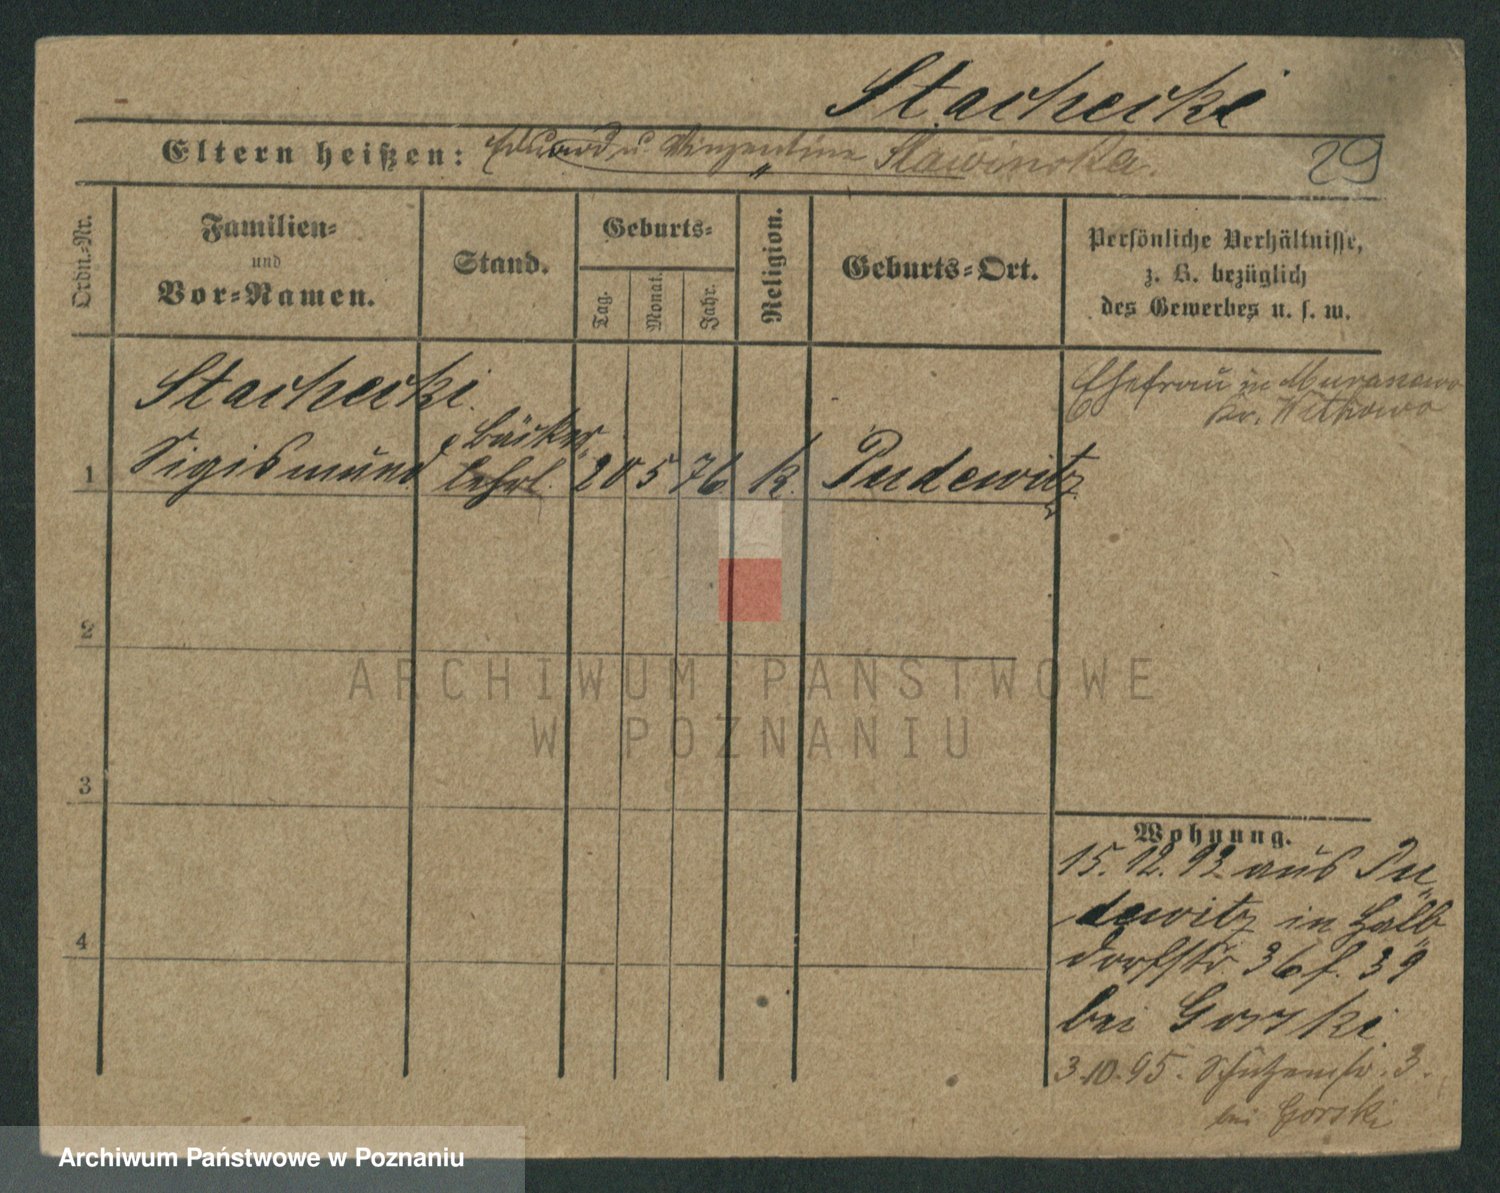 Stachecki
Eltern heißen: Eduard u. Vinzentine Slawinska.
29
Ordn.-Nr.
Familien-
und
Vor-Namen.
Stand.
Geburts-
Tag.
Monat.
Jahr.
Religion.
Geburts-Ort.
Persönliche Verhältnisse,
z. B. bezüglich
des Gewerbes u. s. w.
Stachecki
Ehefrau in
Kr. Witkowo
1 Sigismund Bäcker
lehrl. 20 5 76 k. Pudewitz
2
ARCHIWUM PAŃSTWOWE
W POZNANIU
3
Wohnung.
15. 12. 93 aus Pu
dewitz in Halb
dorfstr. 36 f. 39
bei Gorski
4
3.10.95. Schützenstr. 3.
bei Gorski
Archiwum Państwowe w Poznaniu